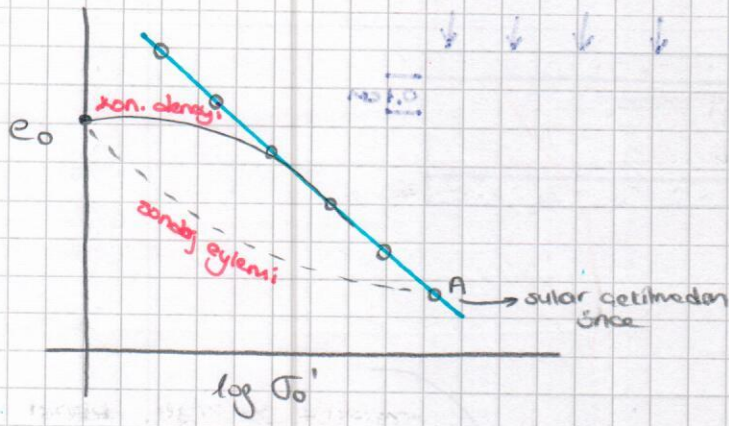 kon. deneyi
e₀
sondaj eylemi
A → sular çekilmeden
önce
log σ₀'